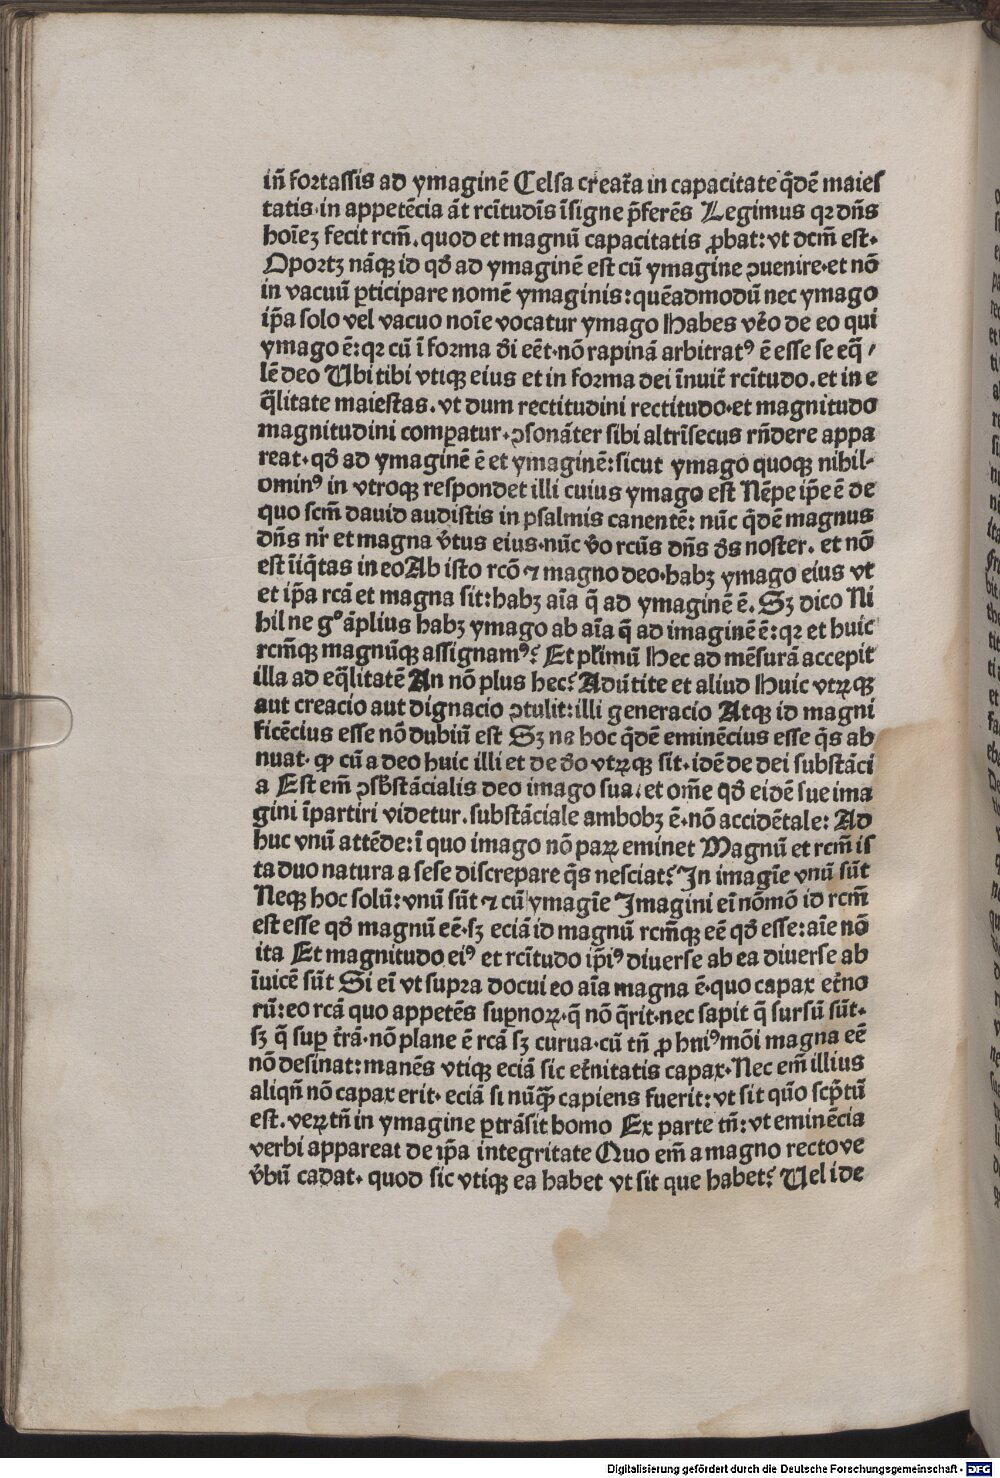 in̄ fortassis ad ymaginē Celsa creat̄a in capacitate q̄dē maies
tatis·in appetēcia āt rcītudīs īsigne p̄ferēs Legimus qꝛ dn̄s
hoīeʒ fecit rcm̄. quod et magnū capacitatis ꝓbat: vt dcm̄ est·
Oportʒ nāqꝫ id qð ad ymaginē est cū ymagine ꝯuenire·et nō
in vacuū ꝑticipare nomē ymaginis: quēadmodū nec ymago
ip̄a solo vel vacuo noīe vocatur ymago Habes ṽo de eo qui
ymago ē: qꝛ cū ī forma ði eēt·nō rapinā arbitratꝰ ē esse se eq̄ /
lē deo Ubi tibi vtiqꝫ eius et in forma dei īnuit̄ rcītudo. et in e
q̄litate maiestas. vt dum rectitudini rectitudo·et magnitudo
magnitudini comꝑatur· ꝯsonāter sibi altrīsecus rn̄dere appa
reat· qð ad ymaginē ē et ymaginē: sicut ymago quoqꝫ nihil-
ominꝰ in vtroqꝫ respondet illi cuius ymago est Nēpe ip̄e ē de
quo scm̄ dauid audistis in psalmis canentē: nūc q̄dē magnus
dn̄s nr̄ et magna v̄tus eius·nūc v̄o rcūs dn̄s ðs noster. et nō
est īiq̄tas in eo Ab isto rcō ⁊ magno deo·habʒ ymago eius vt
et ip̄a rcā et magna sit: habʒ aīa q̄ ad ymaginē ē. Sʒ dico Ni
hil ne gͦ āplius habʒ ymago ab aīa q̄ ad imaginē ē: qꝛ et huic
rcm̄qꝫ magnūqꝫ assignamꝰ? Et primū Hec ad mēsurā accepit
illa ad eq̄litatē An nō plus hec? Adūtite et aliud Huic vtꝝqꝫ
aut creacio aut dignacio ꝯtulit: illi generacio Atqꝫ id magni
ficēcius esse nō dubiū est Sʒ ne hoc q̄dē eminēcius esse q̄s ab
nuat· ꝙ cū a deo huic illi et de ðo vtꝝqꝫ sit· idē de dei substāci
a Est em̄ ꝯsb̄stācialis deo imago sua: et om̄e qð eidē sue ima
gini īpartiri videtur. substāciale ambobʒ ē· nō accidētale: Ad
huc vnū attēde: ī quo imago nō paꝝ eminet Magnū et rcm̄ is
ta duo natura a sese discrepare q̄s nesciat? In imagīe vnū sūt
Neqꝫ hoc solū: vnū sūt ⁊ cū ymagīe Imagini eī nōmō id rcm̄
est esse qð magnū eē·sʒ eciā id magnū rcm̄qꝫ eē qð esse: aīe nō
ita Et magnitudo eiꝰ et rcītudo ip̄iꝰ diuerse ab ea diuerse ab
īuicē sūt Si eī vt supra docui eo aīa magna ē· quo capax et̄no
rū: eo rcā quo appetēs suꝑnoꝝ· q̄ nō q̄rit· nec sapit q̄ sursū sūt·
sʒ q̄ suꝑ t̄rā· nō plane ē rcā sʒ curua· cū tn̄ ꝓ hmōi magna eē
nō desinat: manēs vtiqꝫ eciā sic et̄nitatis capax· Nec em̄ illius
aliqn̄ nō capax erit· eciā si nūꝙ̄ capiens fuerit: vt sit quō scp̄tū
est. veꝝtn̄ in ymagine ꝑtrāsit homo Ex parte tn̄: vt eminēcia
verbi appareat de ip̄a integritate Quo em̄ a magno recto ve
v̄bū cadat· quod sic vtiqꝫ ea habet vt sit que habet? Uel ide
Digitalisierung gefördert durch die Deutsche Forschungsgemeinschaft - DFG